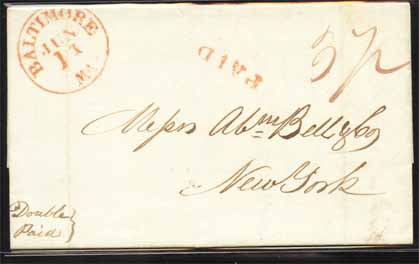 BALTIMORE Md.
JUN
17
PAID
37½
Messrs Abm. Bell & Co
New York
Double
Paid